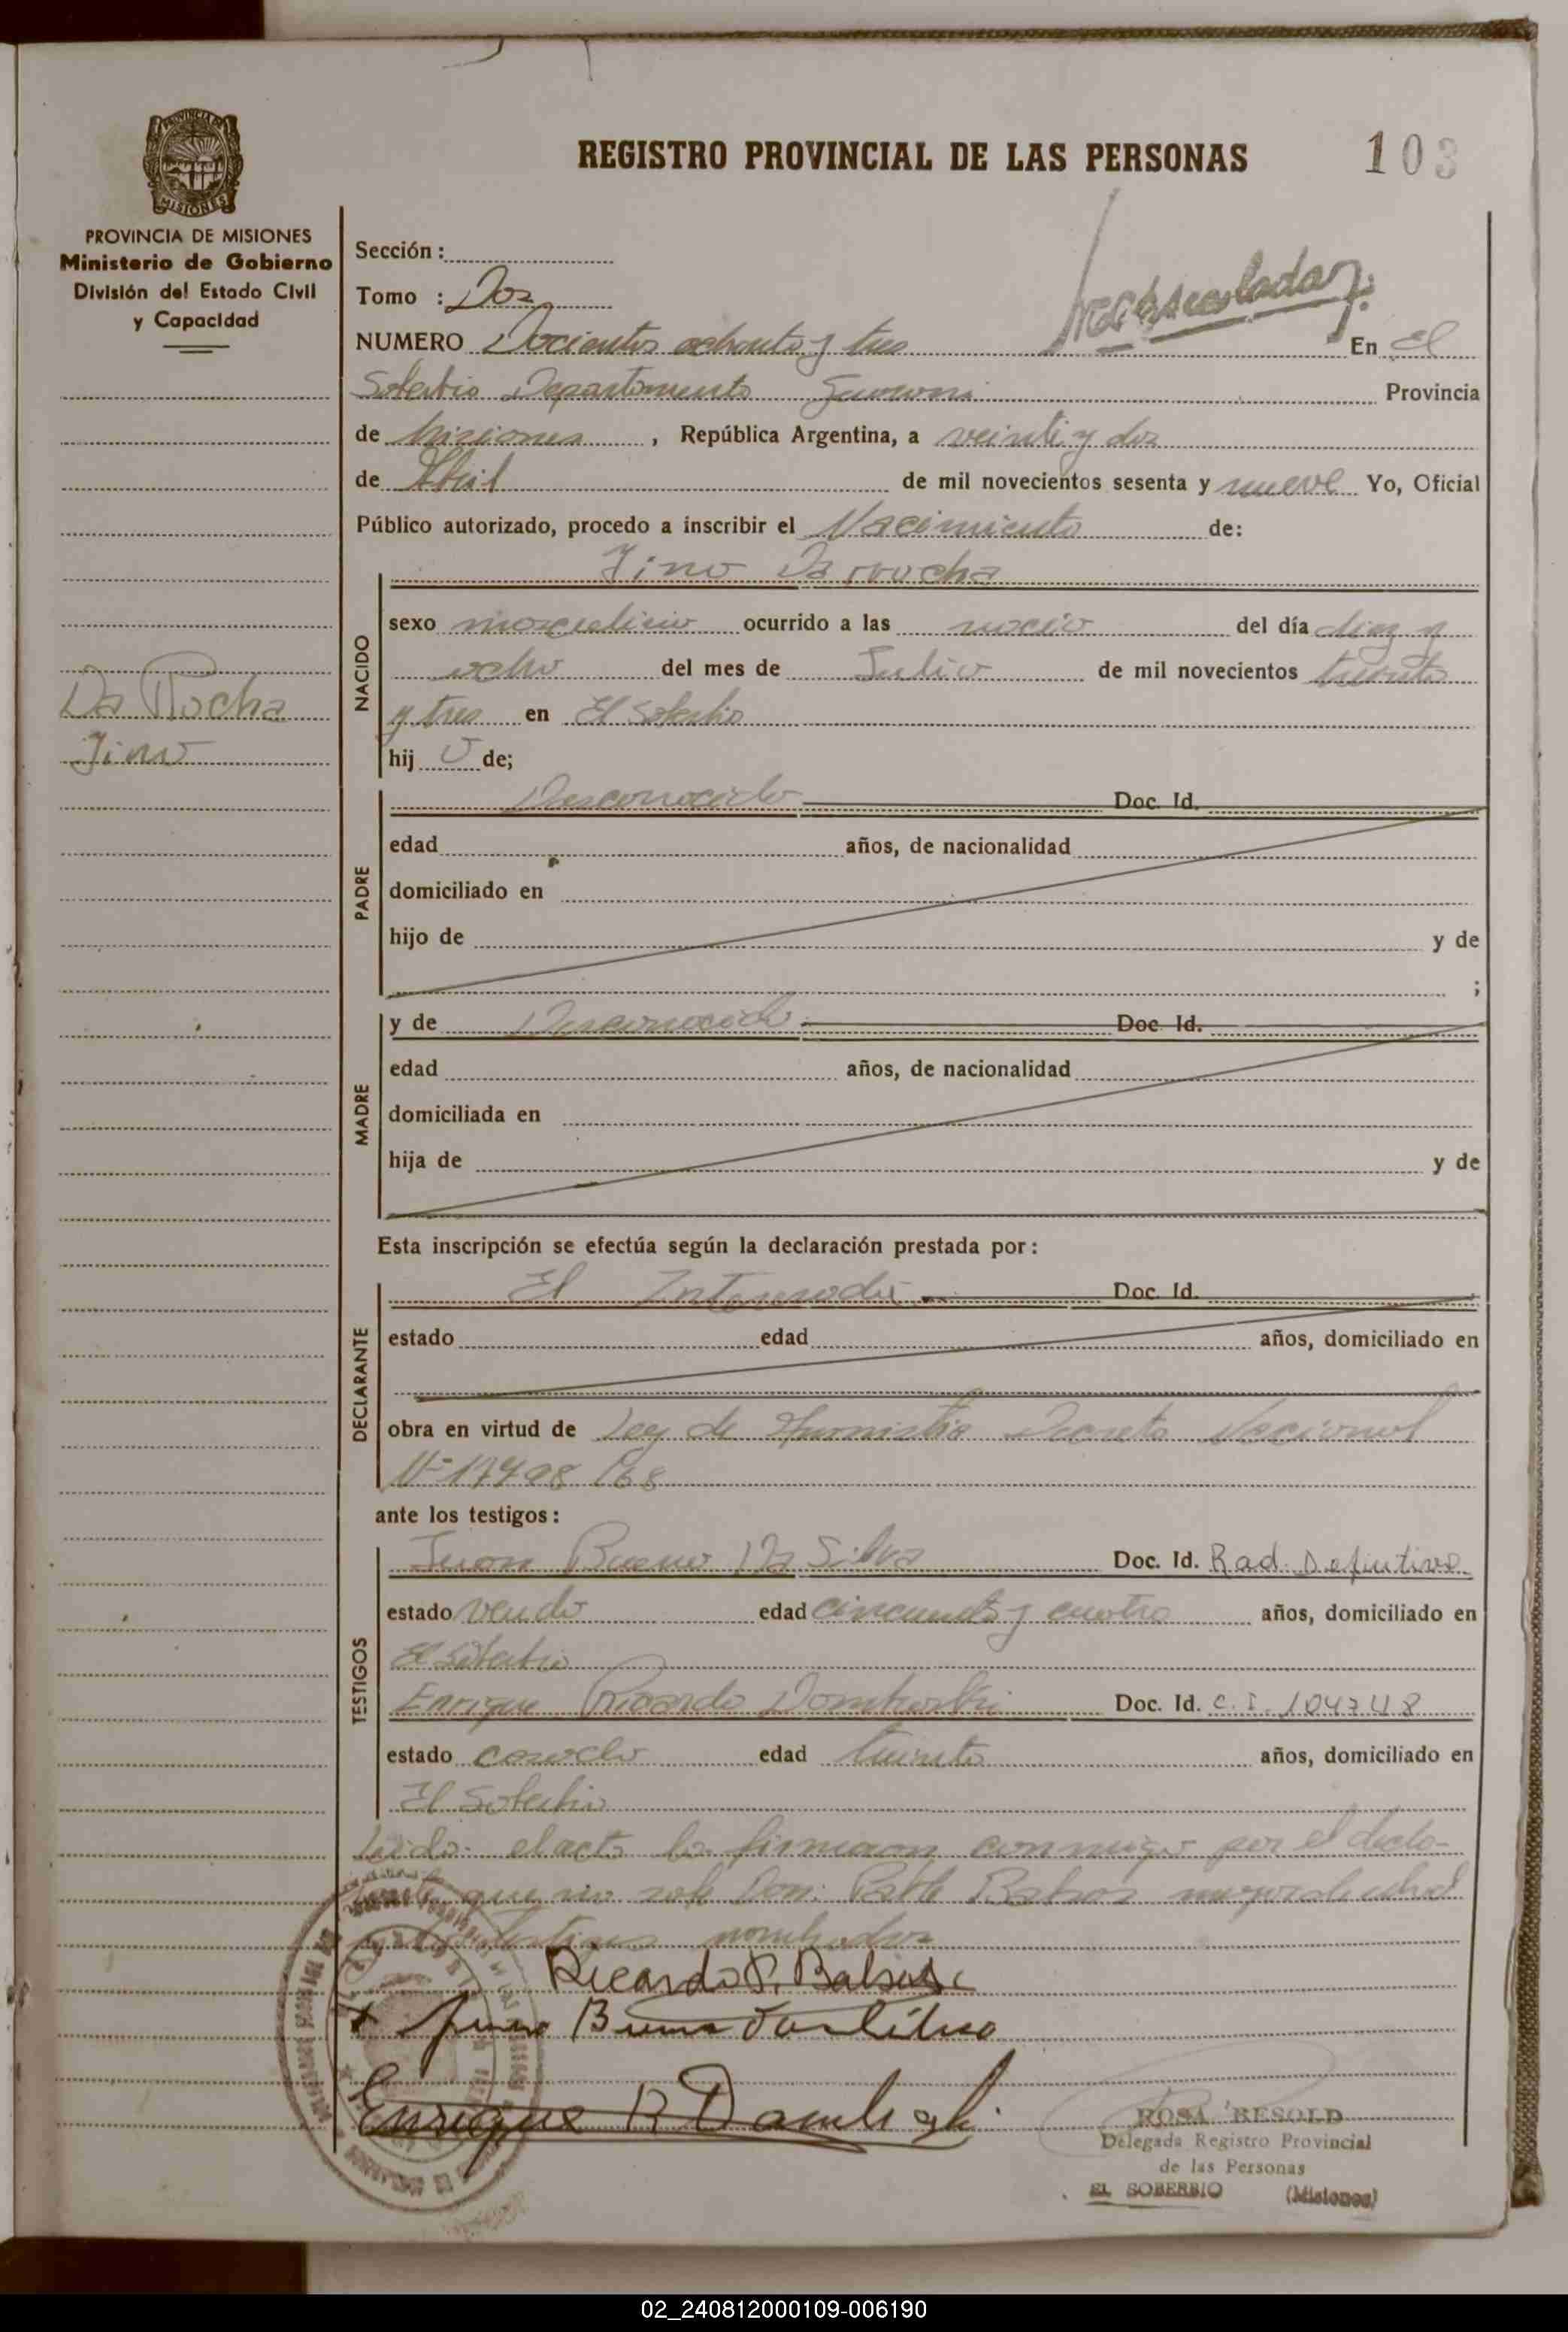 REGISTRO PROVINCIAL DE LAS PERSONAS
103
PROVINCIA DE MISIONES
Ministerio de Gobierno
División del Estado Civil
y Capacidad
Sección :
Tomo : Dos
NUMERO Docientos ochenta y tres En El
Soberbio Departamento Guarani Provincia
de Misiones, República Argentina, a veinti y dos
de Abril de mil novecientos sesenta y nueve Yo, Oficial
Público autorizado, procedo a inscribir el Nacimiento de:
Da Rocha
Jino
NACIDO
Jino Da rrocha
sexo masculino ocurrido a las del día diez y
ocho del mes de Julio de mil novecientos treinta
y tres en El Soberbio
hij o de;
PADRE
Desconocido Doc. Id.
edad años, de nacionalidad
domiciliado en
hijo de y de
;
MADRE
y de Desconocida Doc. Id.
edad años, de nacionalidad
domiciliada en
hija de y de
Esta inscripción se efectúa según la declaración prestada por :
DECLARANTE
El Doc. Id.
estado edad años, domiciliado en
obra en virtud de Ley de Decreto Nacional
Nº 17498/68
ante los testigos :
TESTIGOS
Juan Bueno Da Silva Doc. Id. Rad. Definitivo
estado edad cincuenta y cuatro años, domiciliado en
El Soberbio
Enrique Ricardo Dombroski Doc. Id. C.I. 104748
estado casado edad treinta años, domiciliado en
El Soberbio
Leido el acta la firmaron conmigo por el decla-
que no sabe Don: Pablo mayor de edad
nombrados
Ricardo P.
Enrique R
ROSA BESOLD
Delegada Registro Provincial
de las Personas
EL SOBERBIO (Misiones)
02_240812000109-006190